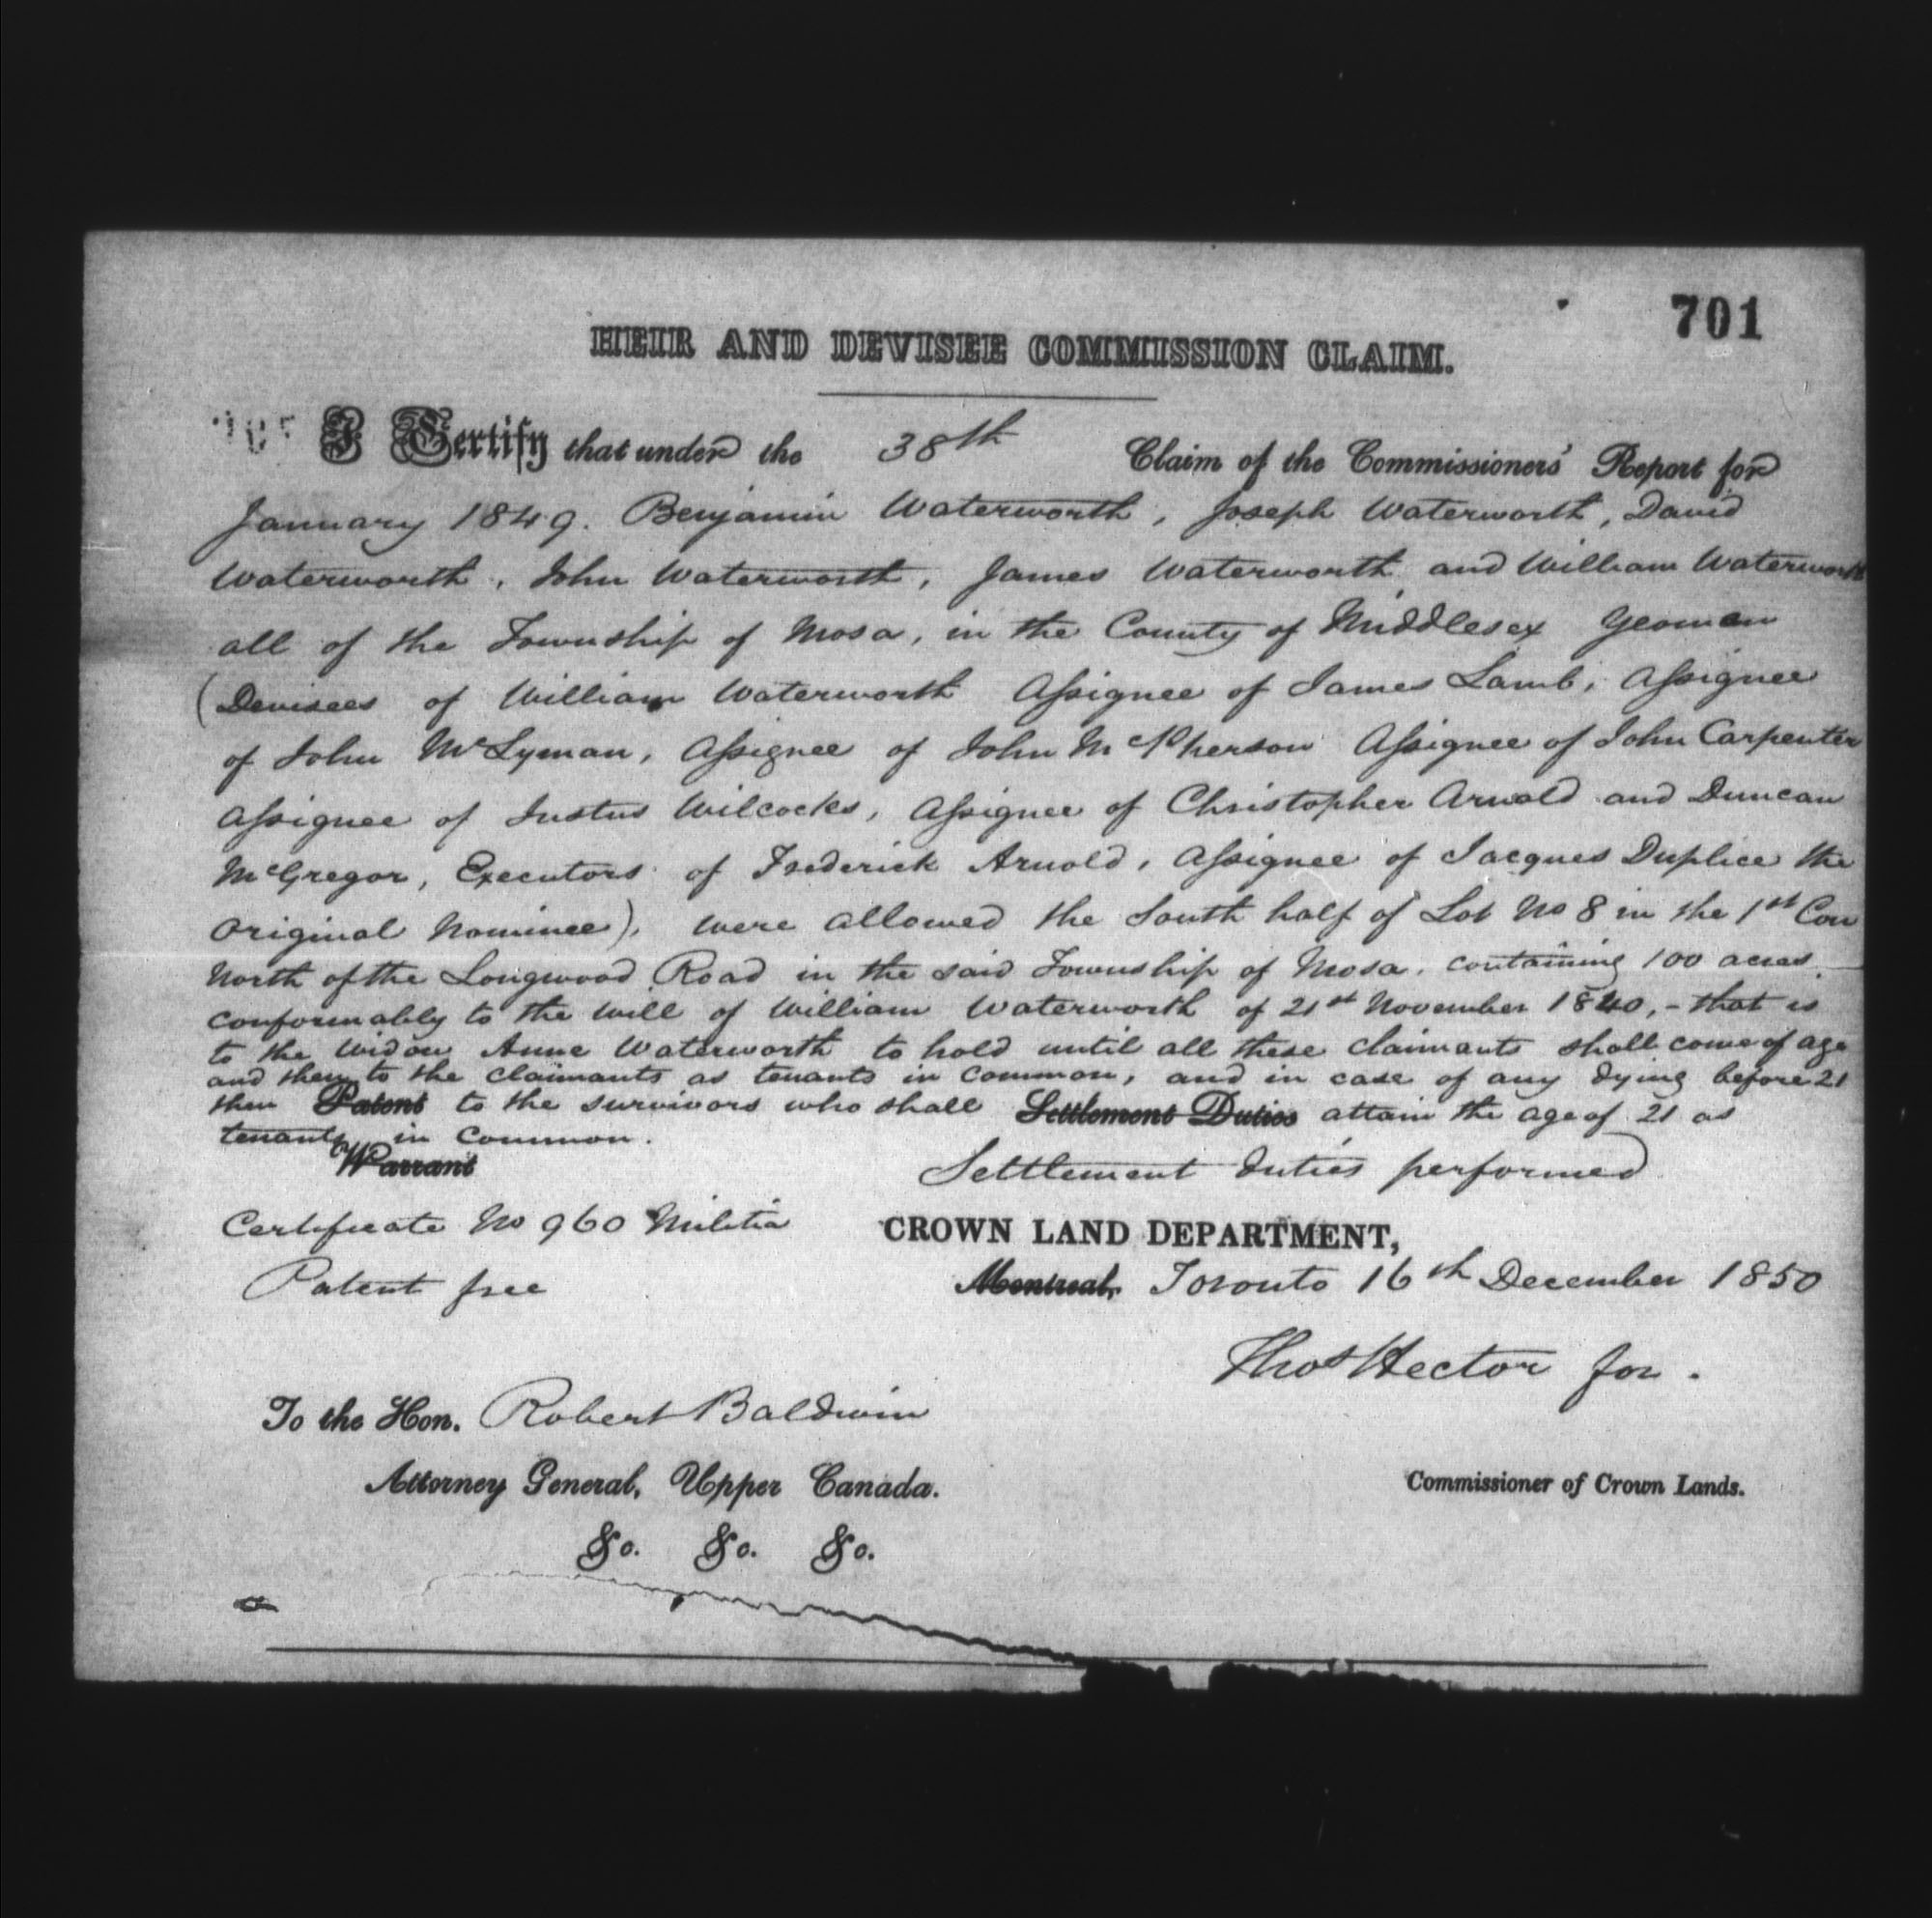 701
HEIR AND DEVISEE COMMISSION CLAIM.
I Certify that under the 38th Claim of the Commissioners' Report for
January 1849. Benjamin Waterworth, Joseph Waterworth, David
Waterworth, John Waterworth, James Waterworth and William Waterworth
all of the Township of Mosa, in the County of Middlesex Yeomen
(Devisees of William Waterworth Assignee of James Lamb, Assignee
of John McLyman, Assignee of John McPherson Assignee of John Carpenter
Assignee of Justus Wilcocks, Assignee of Christopher Arnold and Duncan
McGregor, Executors of Frederick Arnold, Assignee of Jacques Duplice the
original Nominee), were allowed the South half of Lot No 8 in the 1st Con
North of the Longwood Road in the said Township of Mosa, containing 100 acres
conformably to the will of William Waterworth of 21st November 1840, - that is
to the Widow Anne Waterworth to hold until all these claimants shall come of age
and then to the claimants as tenants in common, and in case of any dying before 21
then Patent to the survivors who shall Settlement Duties attain the age of 21 as
tenants in common.
Warrant
Settlement duties performed
Certificate No 960 Militia
CROWN LAND DEPARTMENT,
Patent free
Montreal, Toronto 16th December 1850
Thos Hector for.
To the Hon. Robert Baldwin
Attorney General, Upper Canada.
Commissioner of Crown Lands.
&c. &c. &c.